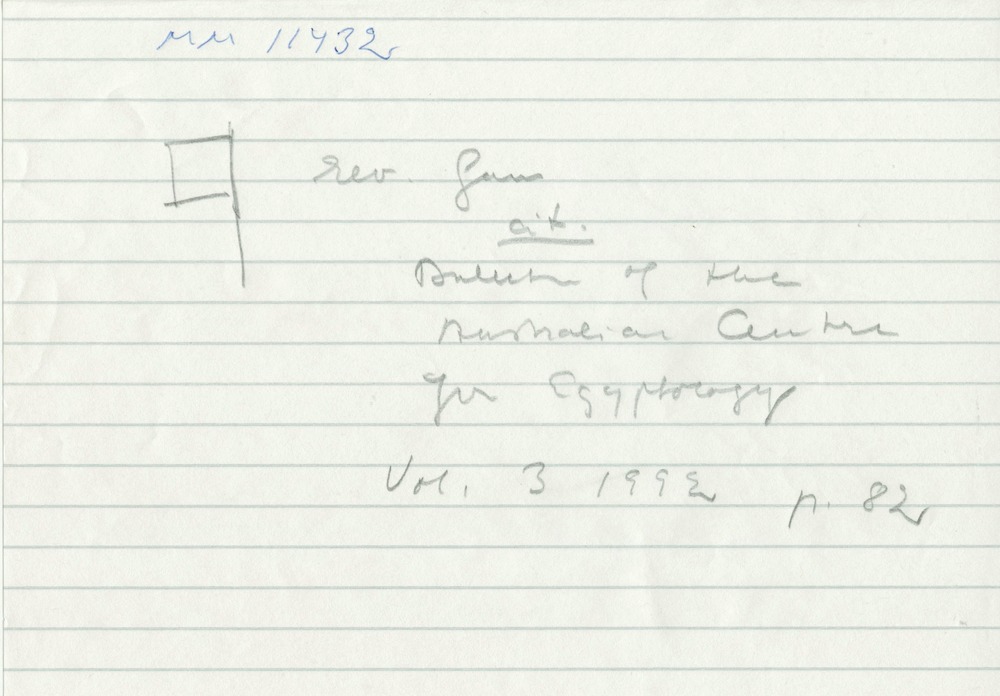 MM 11432
rev.
cit.
Bulletin of the
Australian Centre
for Egyptology
Vol. 3 1992 p. 82